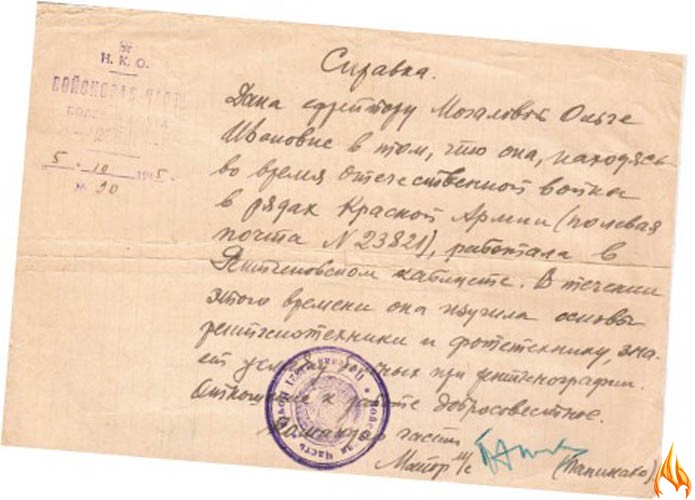 Н. К. О.
ВОЙСКОВАЯ ЧАСТЬ
5. 10 1945.
№ 90
Справка.
Дана ефрейтору Мочаловой Ольге
Ивановне в том, что она, находясь
во время отечественной войны
в рядах Красной Армии (полевая
почта N 23821), работала в
Рентгеновском кабинете. В течении
этого времени она изучила основы
рентгенотехники и фототехнику, зна-
ет при рентгенографии.
Отношение к работе добросовестное.
Командир части
Майор м/с